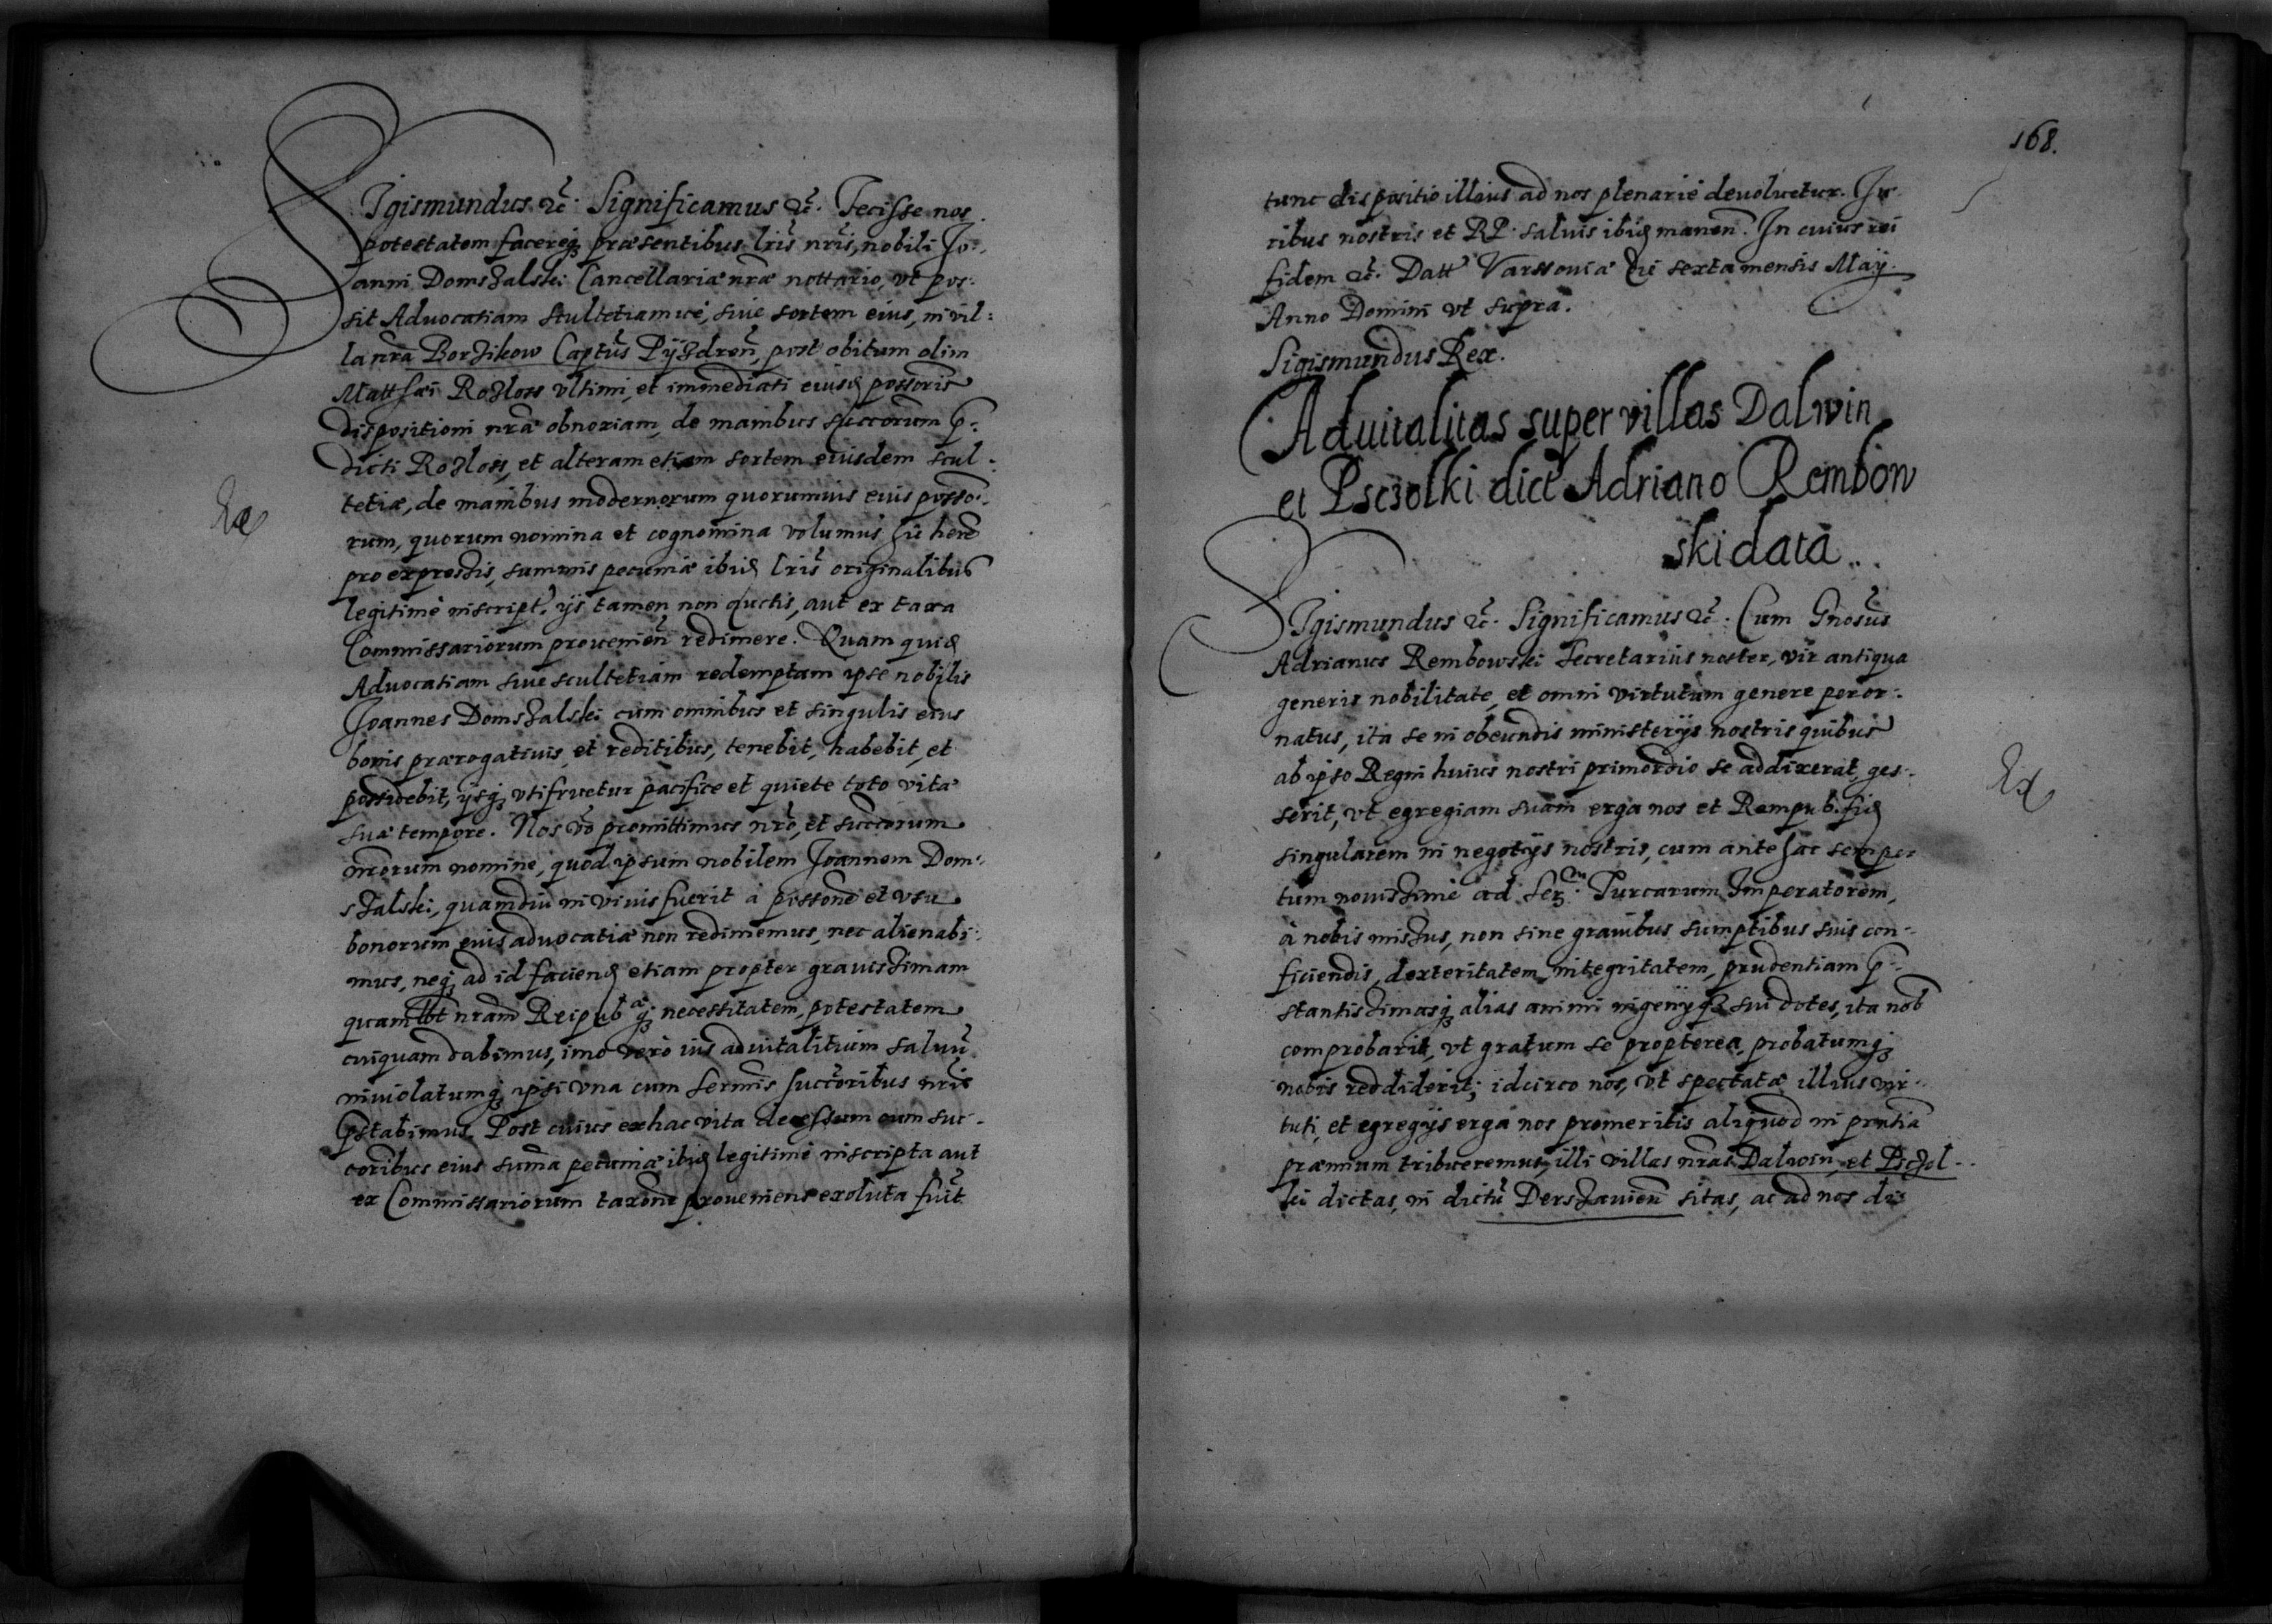 SIgismundus &c. Significamus &c. Fecisse nos
potestatem facereq3 præsentibus lris nris, nobili Jo:
anni Domszalski Cancellariæ nræ nottario, vt pos:
sit Aduocatiam scultetiamue, siue sortem eius, in vil:
la nra Borzikow Captus Pyzdren, post obitum olim
Matthæi Rozloss vltimi, et immediati eiusd possoris
dispositioni nræ obnoxiam, de manibus succorum p:
dicti Rozloss, et alteram etiam sortem eiusdem scul:
tetiæ, de manibus modernorum quorumuis eius posso:
rum, quorum nomina et cognomina volumus hic here
pro expressis, summis pecuniæ ibid lris originalibus
legitimè inscript. ijs tamen non auctis, aut ex taxa
Commissariorum prouenien redimere. Quam quid
Aduocatiam siue scultetiam redemptam ipse nobilis
Joannes Domszalski cum omnibus et singulis eius
bonis prærogatiuis, et reditibus, tenebit, habebit, et
possidebit, ijsq3 vtifruetur pacifice et quiete toto vitæ
suæ tempore. Nos vo promittimus nro, et succorum
nrorum nomine, quod ipsum nobilem Joannem Dom:
szalski, quamdiu in viuis fuerit à possone et vsu
bonorum eius aduocatiæ non redimemus, nec alienabi:
mus, neq3 ad id faciend etiam propter grauissimam
quamlbt nram Reipub æ q3 necessitatem, potestatem
cuiquam dabimus, imo verò ius aduitalitium saluu
inuiolatumq3 ipsi vna cum sermis succoribus nris
pstabimus. Post cuius ex hac vita decessum cum suc:
coribus eius suma pecuniæ ibid legitimè inscripta aut
ex Commissariorum taxone proueniens exoluta fuit
Ex
168.
tunc dispositio illius ad nos plenariè deuoluetur. Ju
ribus nostris et RP. saluis ibid manen. In cuius rei
fidem &c. Datt Varssouiæ die sexta mensis Maij
Anno Domini vt supra.
Sigismundus Rex.
Aduitalitas super villas Dalwin
et Psczolki dict Adriano Rembow
ski data.
SIgismundus &c. Significamus &c. Cum Gnosus
Adrianus Rembowski Secretarius noster, vir antiqua
generis nobilitate, et omni virtutum genere peror:
natus, ita se in obeundis ministerijs nostris quibus
ab ipso Regni huius nostri primordio se addixerat, ges:
serit, vt egregiam suam erga nos et Rempub. fid
singularem in negotijs nostris, cum ante hac semper
tum nouissimè ad Ser. Turcarum Imperatorem,
à nobis missus, non sine grauibus sumptibus suis con:
ficiendis, dexteritatem, integritatem, prudentiam p:
stantissimasq3 alias animi ingenijq3 sui dotes, ita nob
comprobarit, vt gratum se propterea, probatumq3
nobis reddiderit; idcirco nos, vt spectatæ illius vir:
tuti, et egregijs erga nos promeritis aliquod in prntia
præmium tribueremus, illi villas nras Dalwin, et Psczol:
ki dictas, in dictu Derszauien sitas, ac ad nos dis
Ex